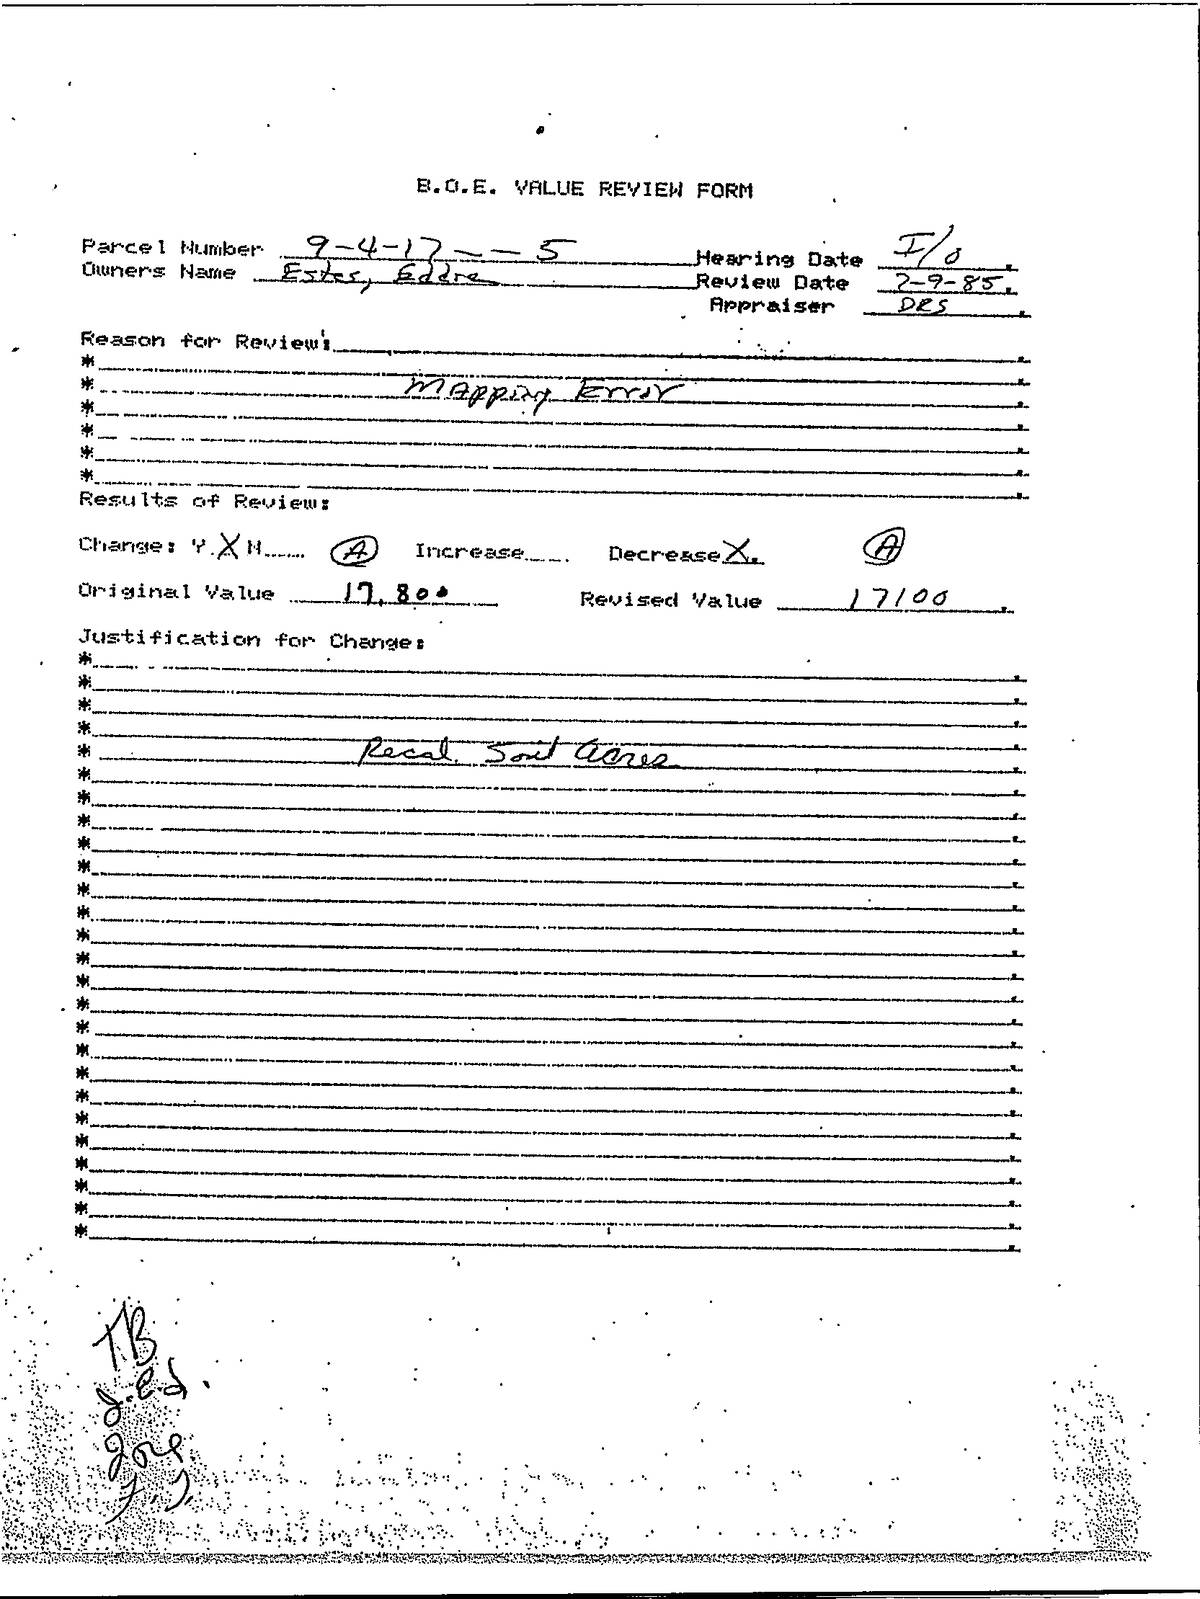 B.O.E. VALUE REVIEW FORM
Parcel Number 9-4-17-- -5
Hearing Date I/O
Owners Name Estes, Eddre
Review Date 7-9-85
Appraiser DRS
Reason for Review:
*
* Mapping Error
*
*
*
*
Results of Review:
Change: Y X N A Increase Decrease X A
Original Value 17,800 Revised Value 17100
Justification for Change:
*
*
*
*
* Recal. Soil Acres
*
*
*
*
*
*
*
*
*
*
*
*
*
*
*
*
*
*
*
*
*
TB
J.E.J.